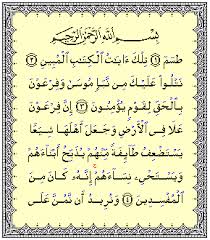 بِسْمِ اللَّهِ الرَّحْمَٰنِ الرَّحِيمِ
طسٓمٓ ۝١ تِلْكَ ءَايَٰتُ ٱلْكِتَٰبِ ٱلْمُبِينِ ۝٢
نَتْلُوا۟ عَلَيْكَ مِن نَّبَإِ مُوسَىٰ وَفِرْعَوْنَ
بِٱلْحَقِّ لِقَوْمٍ يُؤْمِنُونَ ۝٣ إِنَّ فِرْعَوْنَ
عَلَا فِى ٱلْأَرْضِ وَجَعَلَ أَهْلَهَا شِيَعًا
يَسْتَضْعِفُ طَآئِفَةً مِّنْهُمْ يُذَبِّحُ أَبْنَآءَهُمْ
وَيَسْتَحْىِۦ نِسَآءَهُمْ إِنَّهُۥ كَانَ مِنَ
ٱلْمُفْسِدِينَ ۝٤ وَنُرِيدُ أَن نَّمُنَّ عَلَى